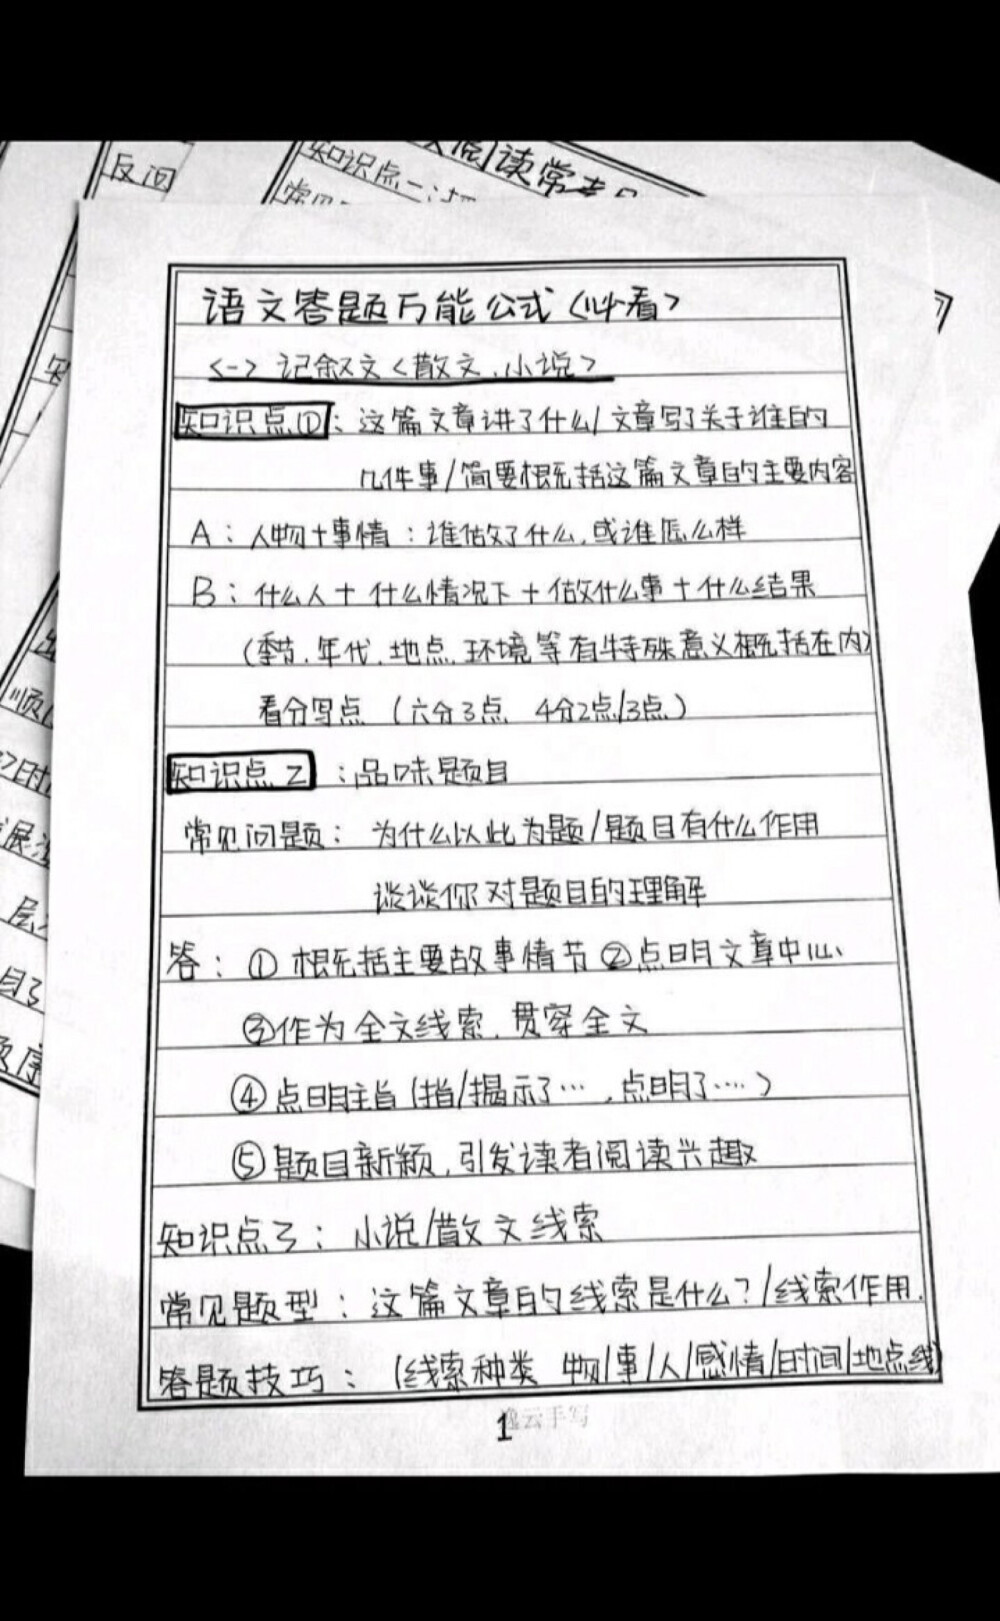 反问
知识点二
阅读常考
语文答题万能公式<必看>
<一> 记叙文<散文.小说>
知识点①：这篇文章讲了什么/文章写了关于谁的
几件事/简要概括这篇文章的主要内容
A：人物+事情：谁做了什么.或谁怎么样
B：什么人+什么情况下+做什么事+什么结果
(季节.年代.地点.环境等有特殊意义概括在内)
看分写点 (六分3点 4分2点/3点)
知识点2：品味题目
常见问题：为什么以此为题/题目有什么作用
谈谈你对题目的理解
答：①概括主要故事情节②点明文章中心
③作为全文线索.贯穿全文
④点明主旨(指/揭示了…,点明了…)
⑤题目新颖.引发读者阅读兴趣
知识点3：小说/散文线索
常见题型：这篇文章的线索是什么?/线索作用.
答题技巧：(线索种类 物/事/人/感情/时间/地点线
逸云手写
1